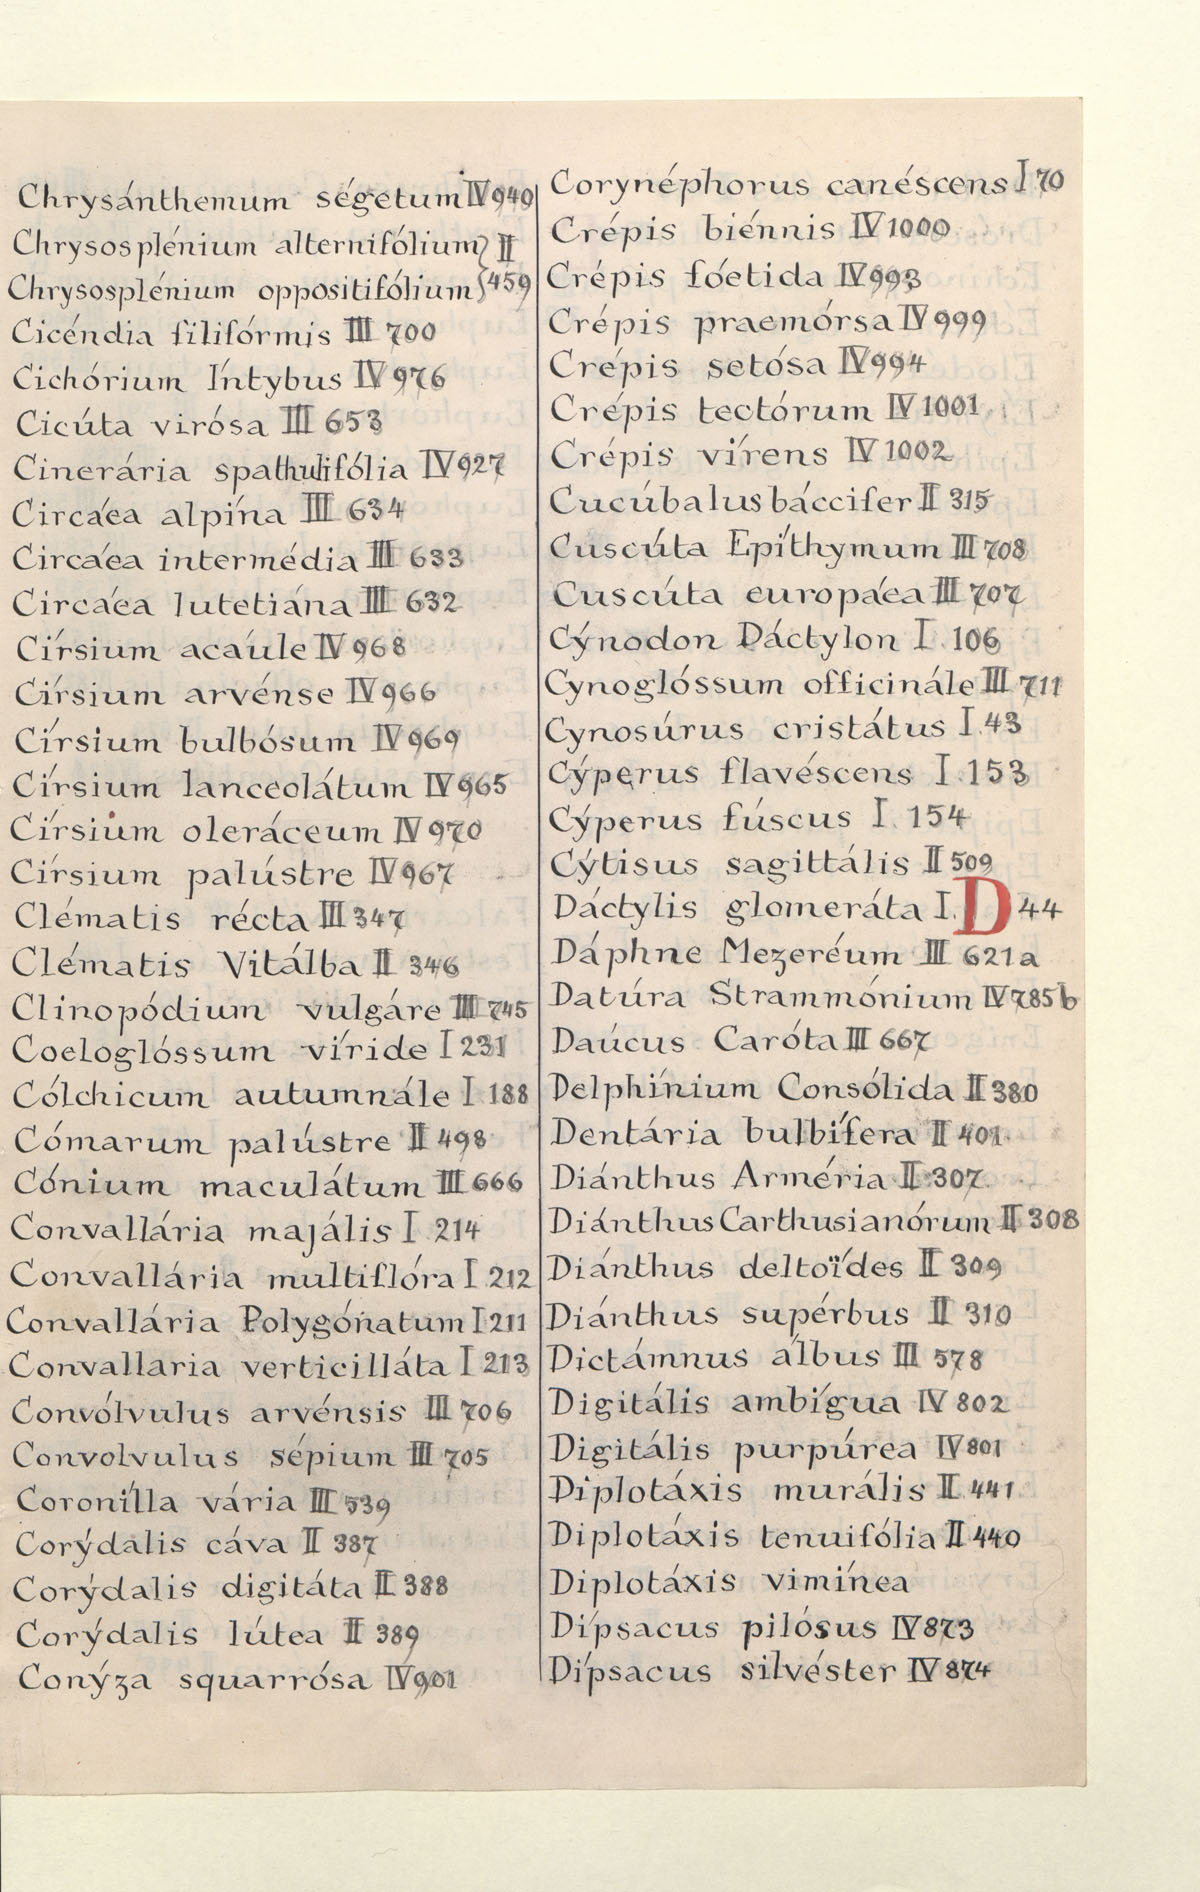 Chrysánthemum ségetum IV 940
Chrysosplénium alternifólium } II
Chrysosplénium oppositifólium } 459
Cicéndia filifórmis III 700
Cichórium Íntybus IV 976
Cicúta virósa III 653
Cinerária spathulifólia IV 927
Circáea alpína III 634
Circáea intermédia III 633
Circáea lutetiána III 632
Círsium acaúle IV 968
Círsium arvénse IV 966
Círsium bulbósum IV 969
Círsium lanceolátum IV 965
Círsium oleráceum IV 970
Círsium palústre IV 967
Clématis récta III 347
Clématis Vitálba II 346
Clinopódium vulgáre III 745
Coeloglóssum víride I 231
Cólchicum autumnále I 188
Cómarum palústre II 498
Cónium maculátum III 666
Convallária majális I 214
Convallária multiflóra I 212
Convallária Polygónatum I 211
Convallaria verticilláta I 213
Convólvulus arvénsis III 706
Convolvulus sépium III 705
Coronílla vária III 539
Corýdalis cáva II 387
Corýdalis digitáta II 388
Corýdalis lútea II 389
Conýza squarrósa IV 901
Corynéphorus canéscens I 70
Crépis biénnis IV 1000
Crépis fóetida IV 993
Crépis praemórsa IV 999
Crépis setósa IV 994
Crépis tectórum IV 1001
Crépis vírens IV 1002
Cucúbalus báccifer II 315
Cuscúta Epíthymum III 708
Cuscúta européa III 707
Cýnodon Dáctylon I. 106
Cynoglóssum officinále III 711
Cynosúrus cristátus I. 43
Cýperus flavéscens I. 153
Cýperus fúscus I. 154
Cýtisus sagittális II 509
Dáctylis glomeráta I. D 44
Dáphne Mezeréum III 621a
Datúra Strammónium IV 785 b
Daúcus Caróta III 667
Delphínium Consólida II 380
Dentária bulbífera II 401
Diánthus Arméria II 307
Diánthus Carthusianórum II 308
Diánthus deltoídes II 309
Diánthus supérbus II 310
Dictámnus álbus III 578
Digitális ambígua IV 802
Digitális purpúrea IV 801
Diplotáxis murális II 441
Diplotáxis tenuifólia II 440
Diplotáxis vimínea
Dípsacus pilósus IV 873
Dípsacus silvéster IV 874